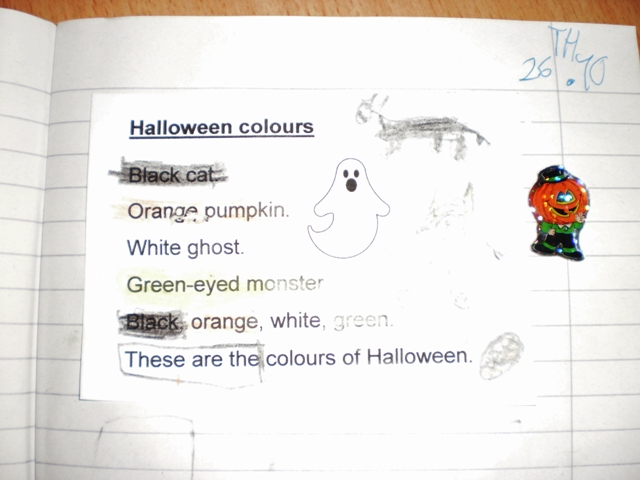 26 TH
Halloween colours
Black cat.
Orange pumpkin.
White ghost.
Green-eyed monster
Black, orange, white, green.
These are the colours of Halloween.